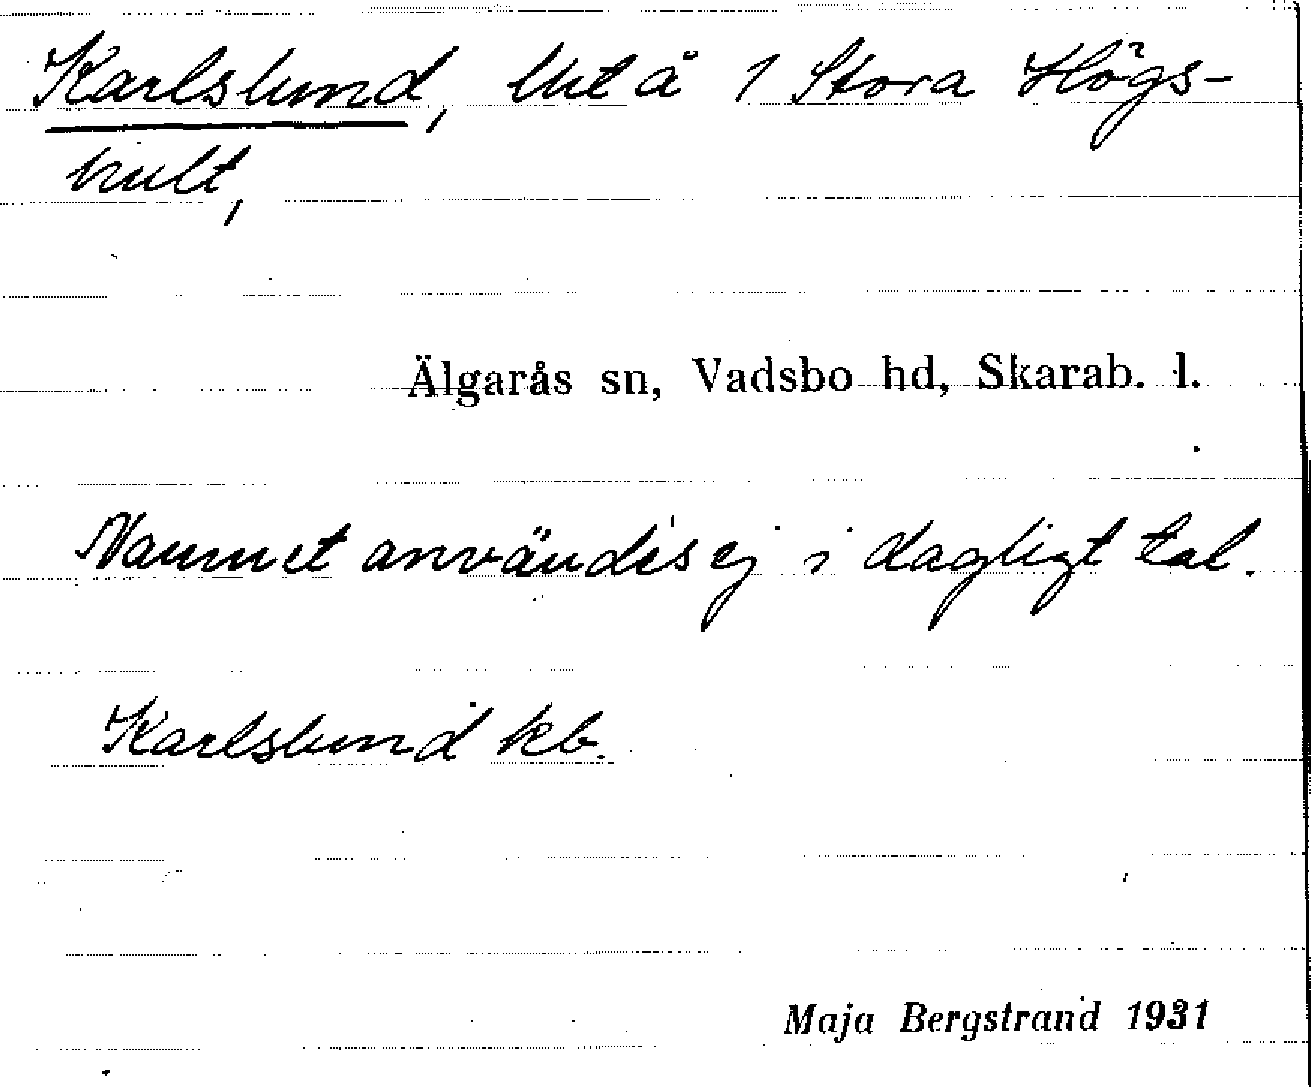 Karlslund, lht å 1 Stora Högs-
hult,
Älgarås sn, Vadsbo hd, Skarab. l.
Namnet användes ej i dagligt tal.
Karlslund kb.
Maja Bergstrand 1931